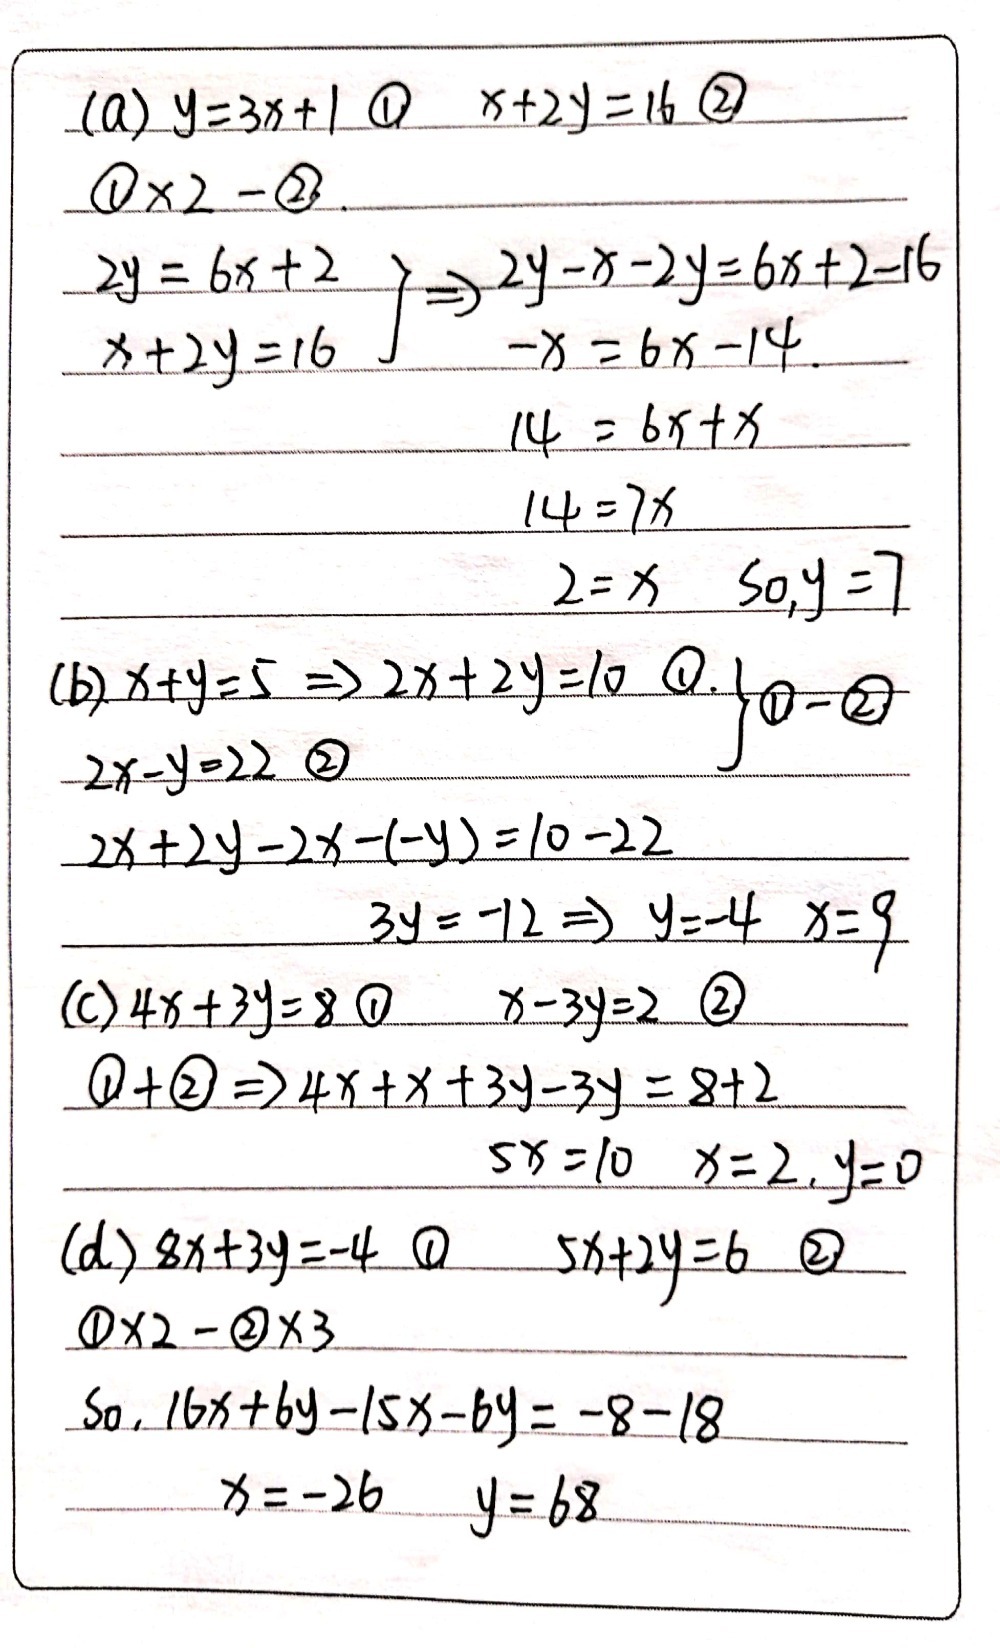 (a) y=3x+1 ① x+2y=16 ②
①×2-②.
2y=6x+2 } ⇒ 2y-x-2y=6x+2-16
x+2y=16 -x=6x-14.
14=6x+x
14=7x
2=x So, y=7
(b) x+y=5 ⇒ 2x+2y=10 ①. } ①-②
2x-y=22 ②
2x+2y-2x-(-y)=10-22
3y=-12 ⇒ y=-4 x=9
(c) 4x+3y=8 ① x-3y=2 ②
①+② ⇒ 4x+x+3y-3y=8+2
5x=10 x=2, y=0
(d) 8x+3y=-4 ① 5x+2y=6 ②
①×2-②×3
So, 16x+6y-15x-6y=-8-18
x=-26 y=68